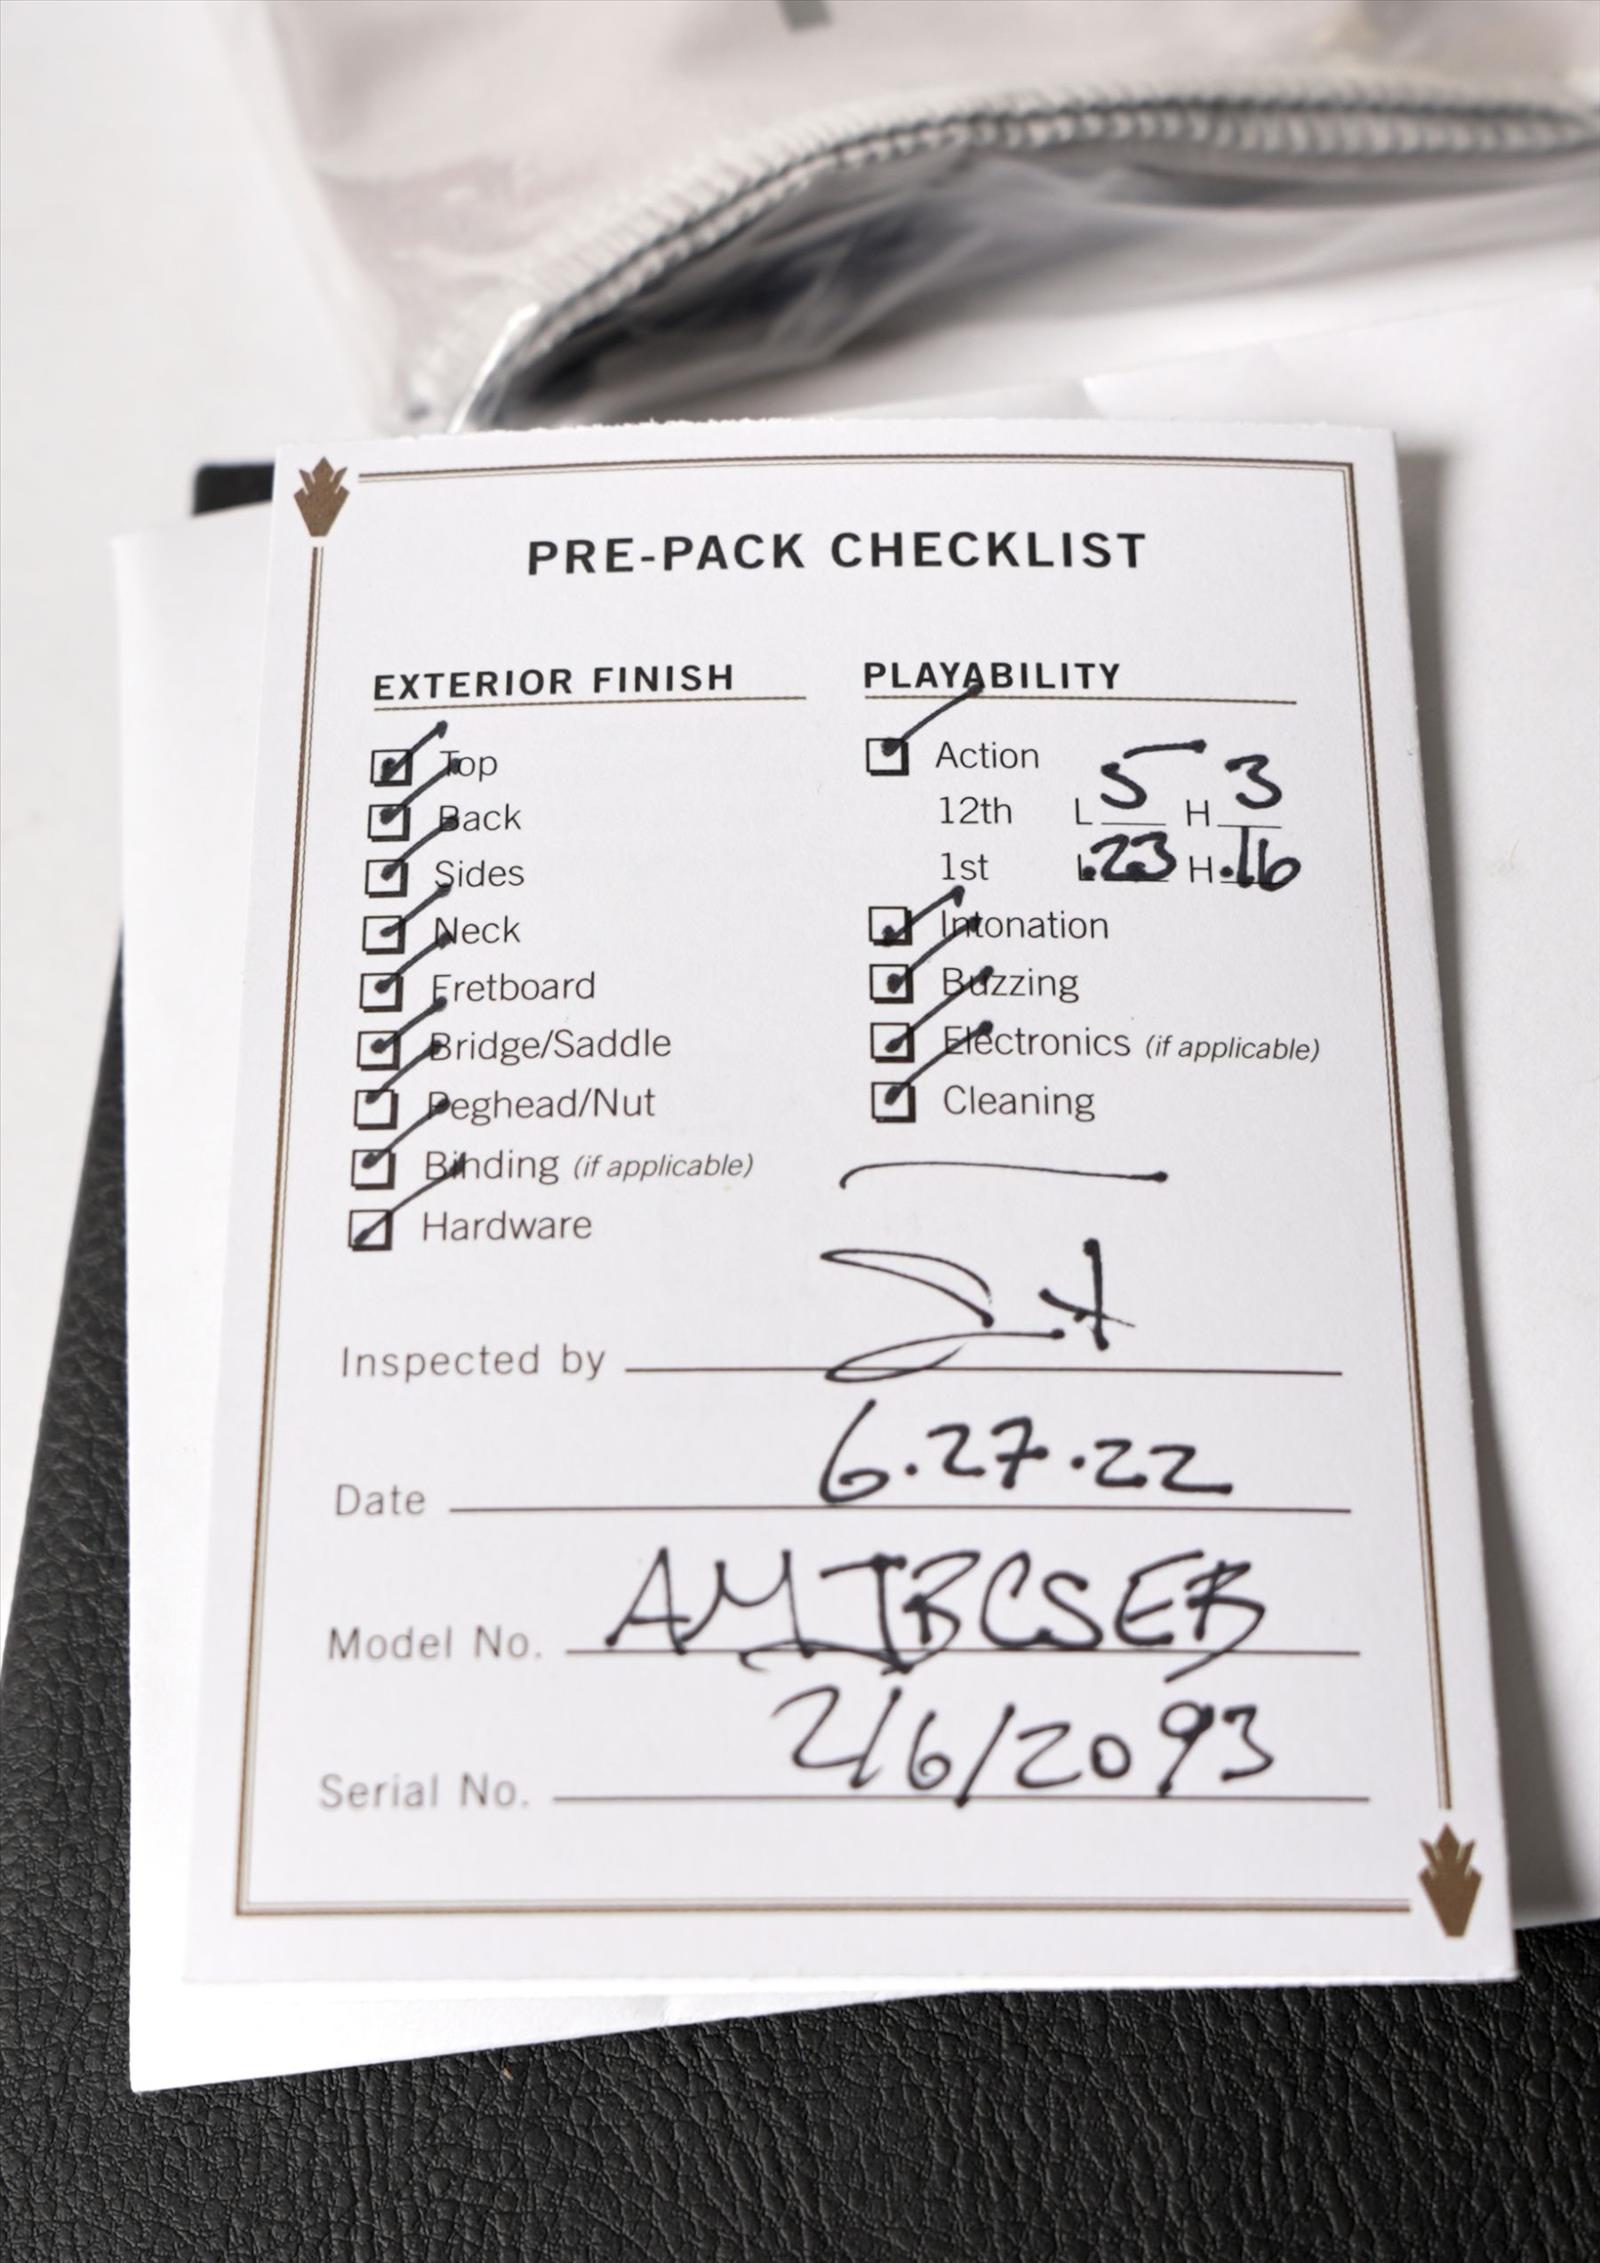 PRE-PACK CHECKLIST
EXTERIOR FINISH
Top
Back
Sides
Neck
Fretboard
Bridge/Saddle
Peghead/Nut
Binding (if applicable)
Hardware
PLAYABILITY
Action
12th L 5 H 3
1st L .23 H .16
Intonation
Buzzing
Electronics (if applicable)
Cleaning
Inspected by
Date 6.27.22
Model No. AMTBCSEB
Serial No. 2/6/2093